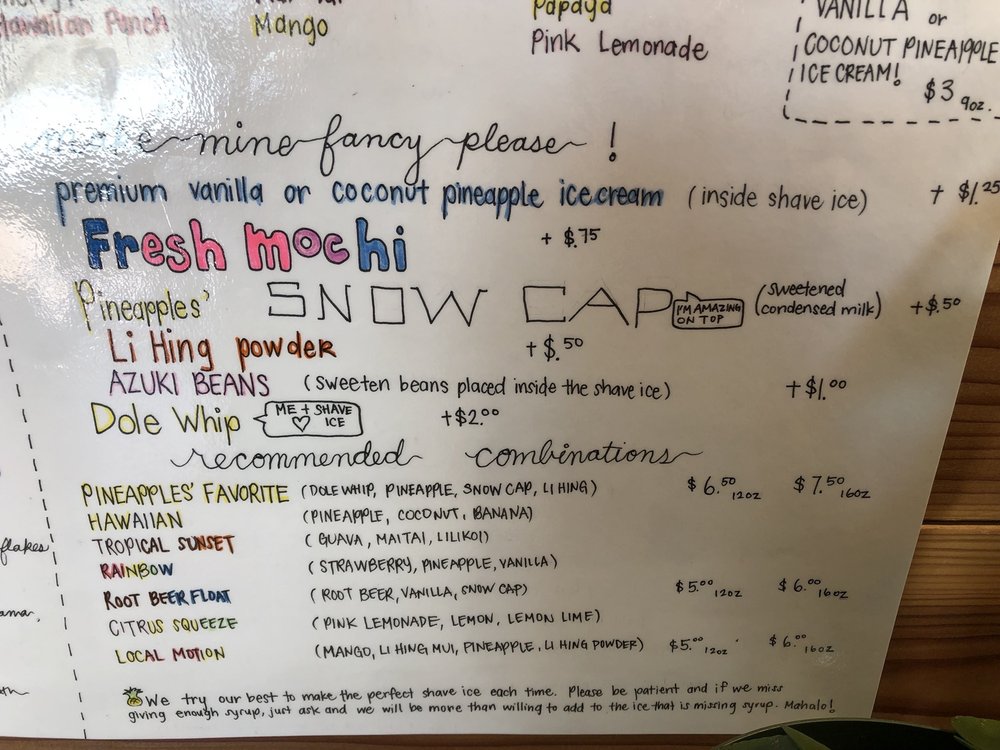 Hawaiian Punch
Mango
Papaya
Pink Lemonade
VANILLA or
COCONUT PINEAPPLE
ICE CREAM!
$3 9oz.
mine fancy please!
premium vanilla or coconut pineapple ice cream (inside shave ice) + $1.25
Fresh mochi + $.75
Pineapples' SNOW CAP I'M AMAZING ON TOP (sweetened condensed milk) +$.50
Li Hing powder +$.50
AZUKI BEANS (sweeten beans placed inside the shave ice) +$1.00
Dole Whip ME + SHAVE ICE +$2.00
recommended combinations
PINEAPPLES' FAVORITE (DOLE WHIP, PINEAPPLE, SNOW CAP, LI HING) $6.50 12oz $7.50 16oz
HAWAIIAN (PINEAPPLE, COCONUT, BANANA)
TROPICAL SUNSET (GUAVA, MAITAI, LILIKOI)
RAINBOW (STRAWBERRY, PINEAPPLE, VANILLA)
ROOT BEER FLOAT (ROOT BEER, VANILLA, SNOW CAP) $5.00 12oz $6.00 16oz
CITRUS SQUEEZE (PINK LEMONADE, LEMON, LEMON LIME)
LOCAL MOTION (MANGO, LI HING MUI, PINEAPPLE, LI HING POWDER) $5.00 12oz $6.00 16oz
flakes
We try our best to make the perfect shave ice each time. Please be patient and if we miss
giving enough syrup, just ask and we will be more than willing to add to the ice that is missing syrup. Mahalo!